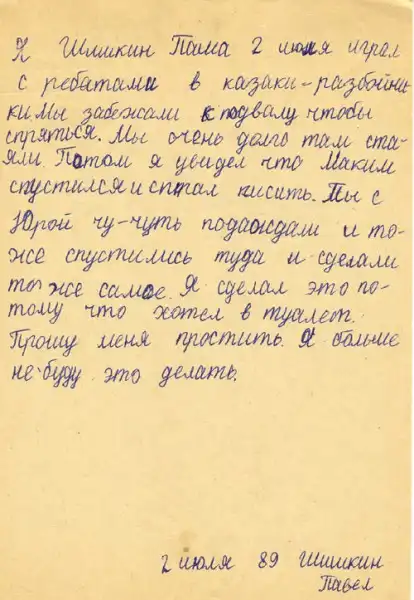 Я Шишкин Паша 2 июля играл
с ребатами в казаки-разбойни
ки. Мы забежали к подвалу чтобы
спряться. Мы очень долго там ста-
яли. Потом я увидел что Маким
спустился и стал писить. Мы с
Юрой чу-чуть подаждали и то-
же спустились туда и сделали
то же самое. Я сделал это по-
тому что хотел в туалет.
Прошу меня простить. Я больше
не буду это делать.
2 июля 89 Шишкин
Павел